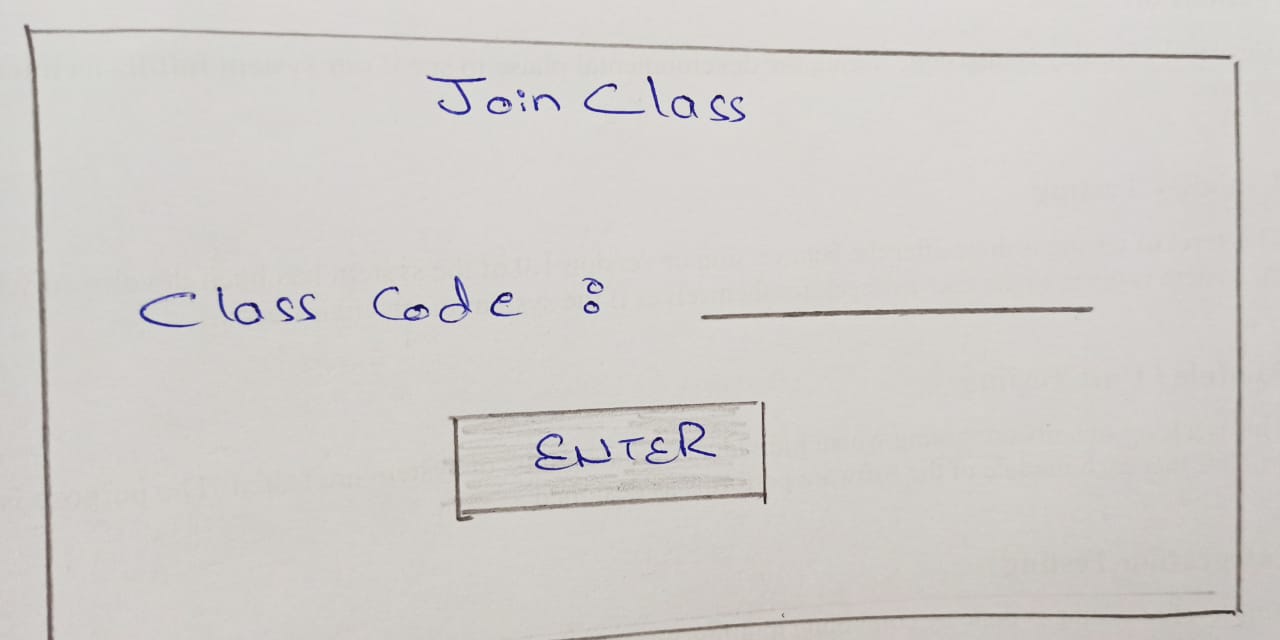 Join Class
Class Code :
ENTER